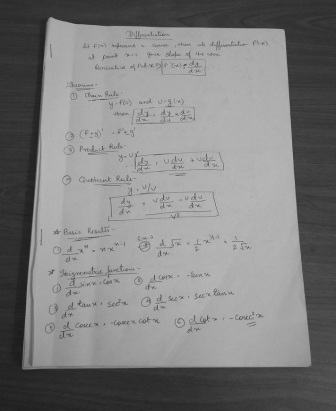 Differentiation
Let F(x) represent a curve, then its differentiation F'(x)
at point x=c gives slope of the curve
Derivative of F(x) is F'(x) = dy/dx
Theorems -
① Chain Rule -
y = f(u) and u = g(x)
then dy/dx = dy/du × du/dx
② (F ± g)' = F' ± g'
③ Product Rule -
y = uv
dy/dx = u dv/dx + v du/dx
④ Quotient Rule -
y = u/v
dy/dx = v du/dx - u dv/dx / v²
* Basic Results -
① d/dx xⁿ = n xⁿ⁻¹ ② d/dx √x = 1/2 x^(-1/2) = 1/2√x
* Trigonometric function -
① d/dx sinx = cosx ② d/dx cosx = -sinx
③ d/dx tanx = sec²x ④ d/dx secx = secx tanx
⑤ d/dx cosecx = -cosecx cotx ⑥ d/dx cotx = -cosec²x